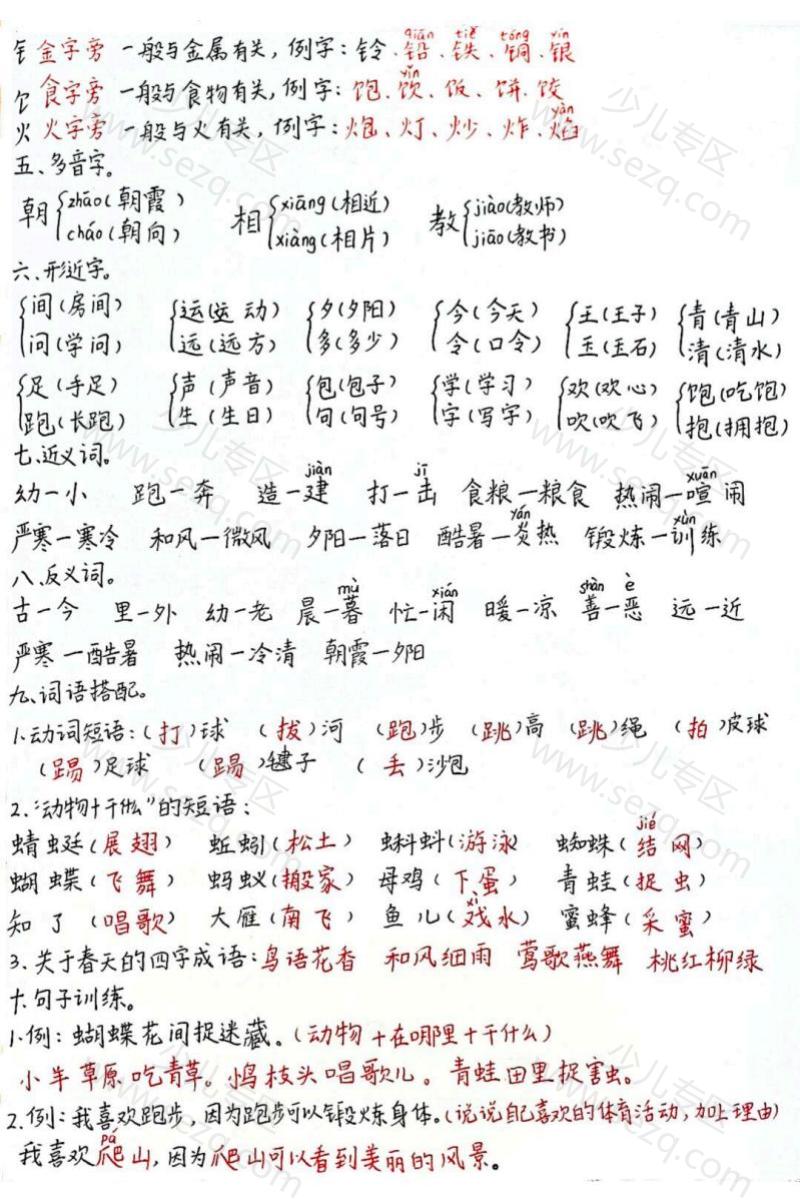 钅 金字旁 一般与金属有关，例字：铃、铅(qiān)、铁(tiě)、铜(tóng)、银(yín)
饣 食字旁 一般与食物有关，例字：饱、饮(yǐn)、饭、饼、饺
火 火字旁 一般与火有关，例字：炮、灯、炒、炸、焰(yàn)
五、多音字。
朝{zhāo(朝霞) cháo(朝向) 相{xiāng(相近) xiàng(相片) 教{jiào(教师) jiāo(教书)
六、形近字。
{间(房间) {运(运动) {夕(夕阳) {今(今天) {王(王子) {青(青山)
{问(学问) {远(远方) {多(多少) {令(口令) {玉(玉石) {清(清水)
{足(手足) {声(声音) {包(包子) {学(学习) {欢(欢心) {饱(吃饱)
{跑(长跑) {生(生日) {句(句号) {字(写字) {吹(吹飞) {抱(拥抱)
七、近义词。
幼—小 跑—奔 造—建(jiàn) 打—击(jī) 食粮—粮食 热闹—喧(xuān)闹
严寒—寒冷 和风—微风 夕阳—落日 酷暑—炎(yán)热 锻炼—训(xùn)练
八、反义词。
古—今 里—外 幼—老 晨—暮(mù) 忙—闲(xián) 暖—凉 善(shàn)—恶(è) 远—近
严寒—酷暑 热闹—冷清 朝霞—夕阳
九、词语搭配。
1.动词短语：(打)球 (拔)河 (跑)步 (跳)高 (跳)绳 (拍)皮球
(踢)足球 (踢)毽子 (丢)沙包
2.“动物+干什么”的短语：
蜻蜓(展翅) 蚯蚓(松土) 蝌蚪(游泳) 蜘蛛(结(jié)网)
蝴蝶(飞舞) 蚂蚁(搬家) 母鸡(下蛋) 青蛙(捉虫)
知了(唱歌) 大雁(南飞) 鱼儿(戏(xì)水) 蜜蜂(采蜜)
3.关于春天的四字成语：鸟语花香 和风细雨 莺歌燕舞 桃红柳绿
十.句子训练。
1.例：蝴蝶花间捉迷藏。(动物+在哪里+干什么)
小牛草原吃青草。鸟枝头唱歌儿。青蛙田里捉害虫。
2.例：我喜欢跑步，因为跑步可以锻炼身体。(说说自己喜欢的体育活动，加上理由)
我喜欢爬(pá)山，因为爬山可以看到美丽的风景。
少儿专区
www.sezq.com